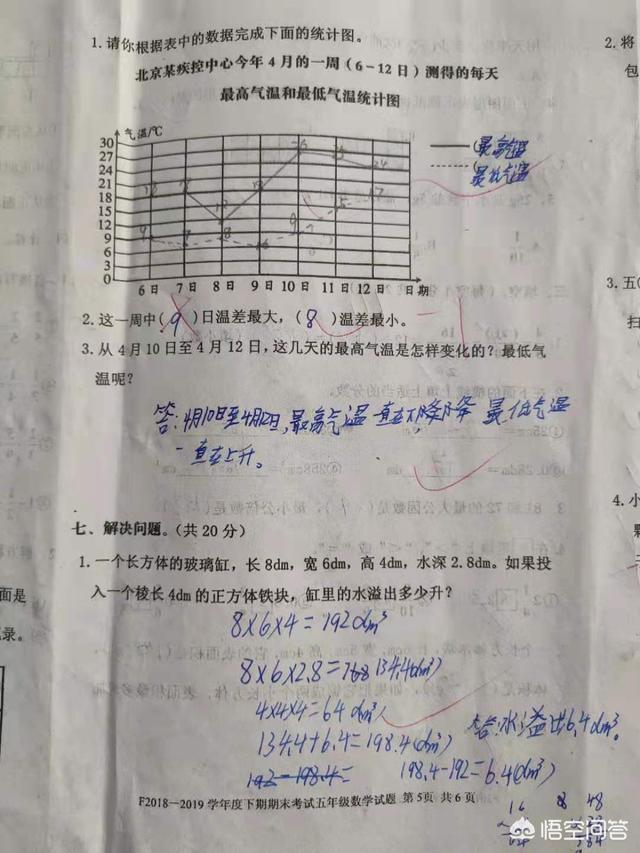 1.请你根据表中的数据完成下面的统计图。
北京某疾控中心今年4月的一周(6-12日)测得的每天
最高气温和最低气温统计图
气温/℃
30
27
24
21
18
15
12
9
6
3
0
6日 7日 8日 9日 10日 11日 12日 日期
最高气温
最低气温
2.这一周中(9)日温差最大,(8)温差最小。
3.从4月10日至4月12日,这几天的最高气温是怎样变化的?最低气
温呢?
答:4月10日至4月12日,最高气温一直在下降 最低气温
一直在上升。
七、解决问题。(共20分)
1.一个长方体的玻璃缸,长8dm,宽6dm,高4dm,水深2.8dm。如果投
入一个棱长4dm的正方体铁块,缸里的水溢出多少升?
8×6×4=192dm³
8×6×2.8=134.4(dm³)
4×4×4=64(dm³)
134.4+6.4=198.4(dm³)
答:水溢出6.4dm³。
192-198.4=
198.4-192=6.4(dm³)
F2018—2019学年度下期期末考试五年级数学试题 第5页 共6页
2.将
3.五(
扫
4.小
面是
记录。
悟空问答